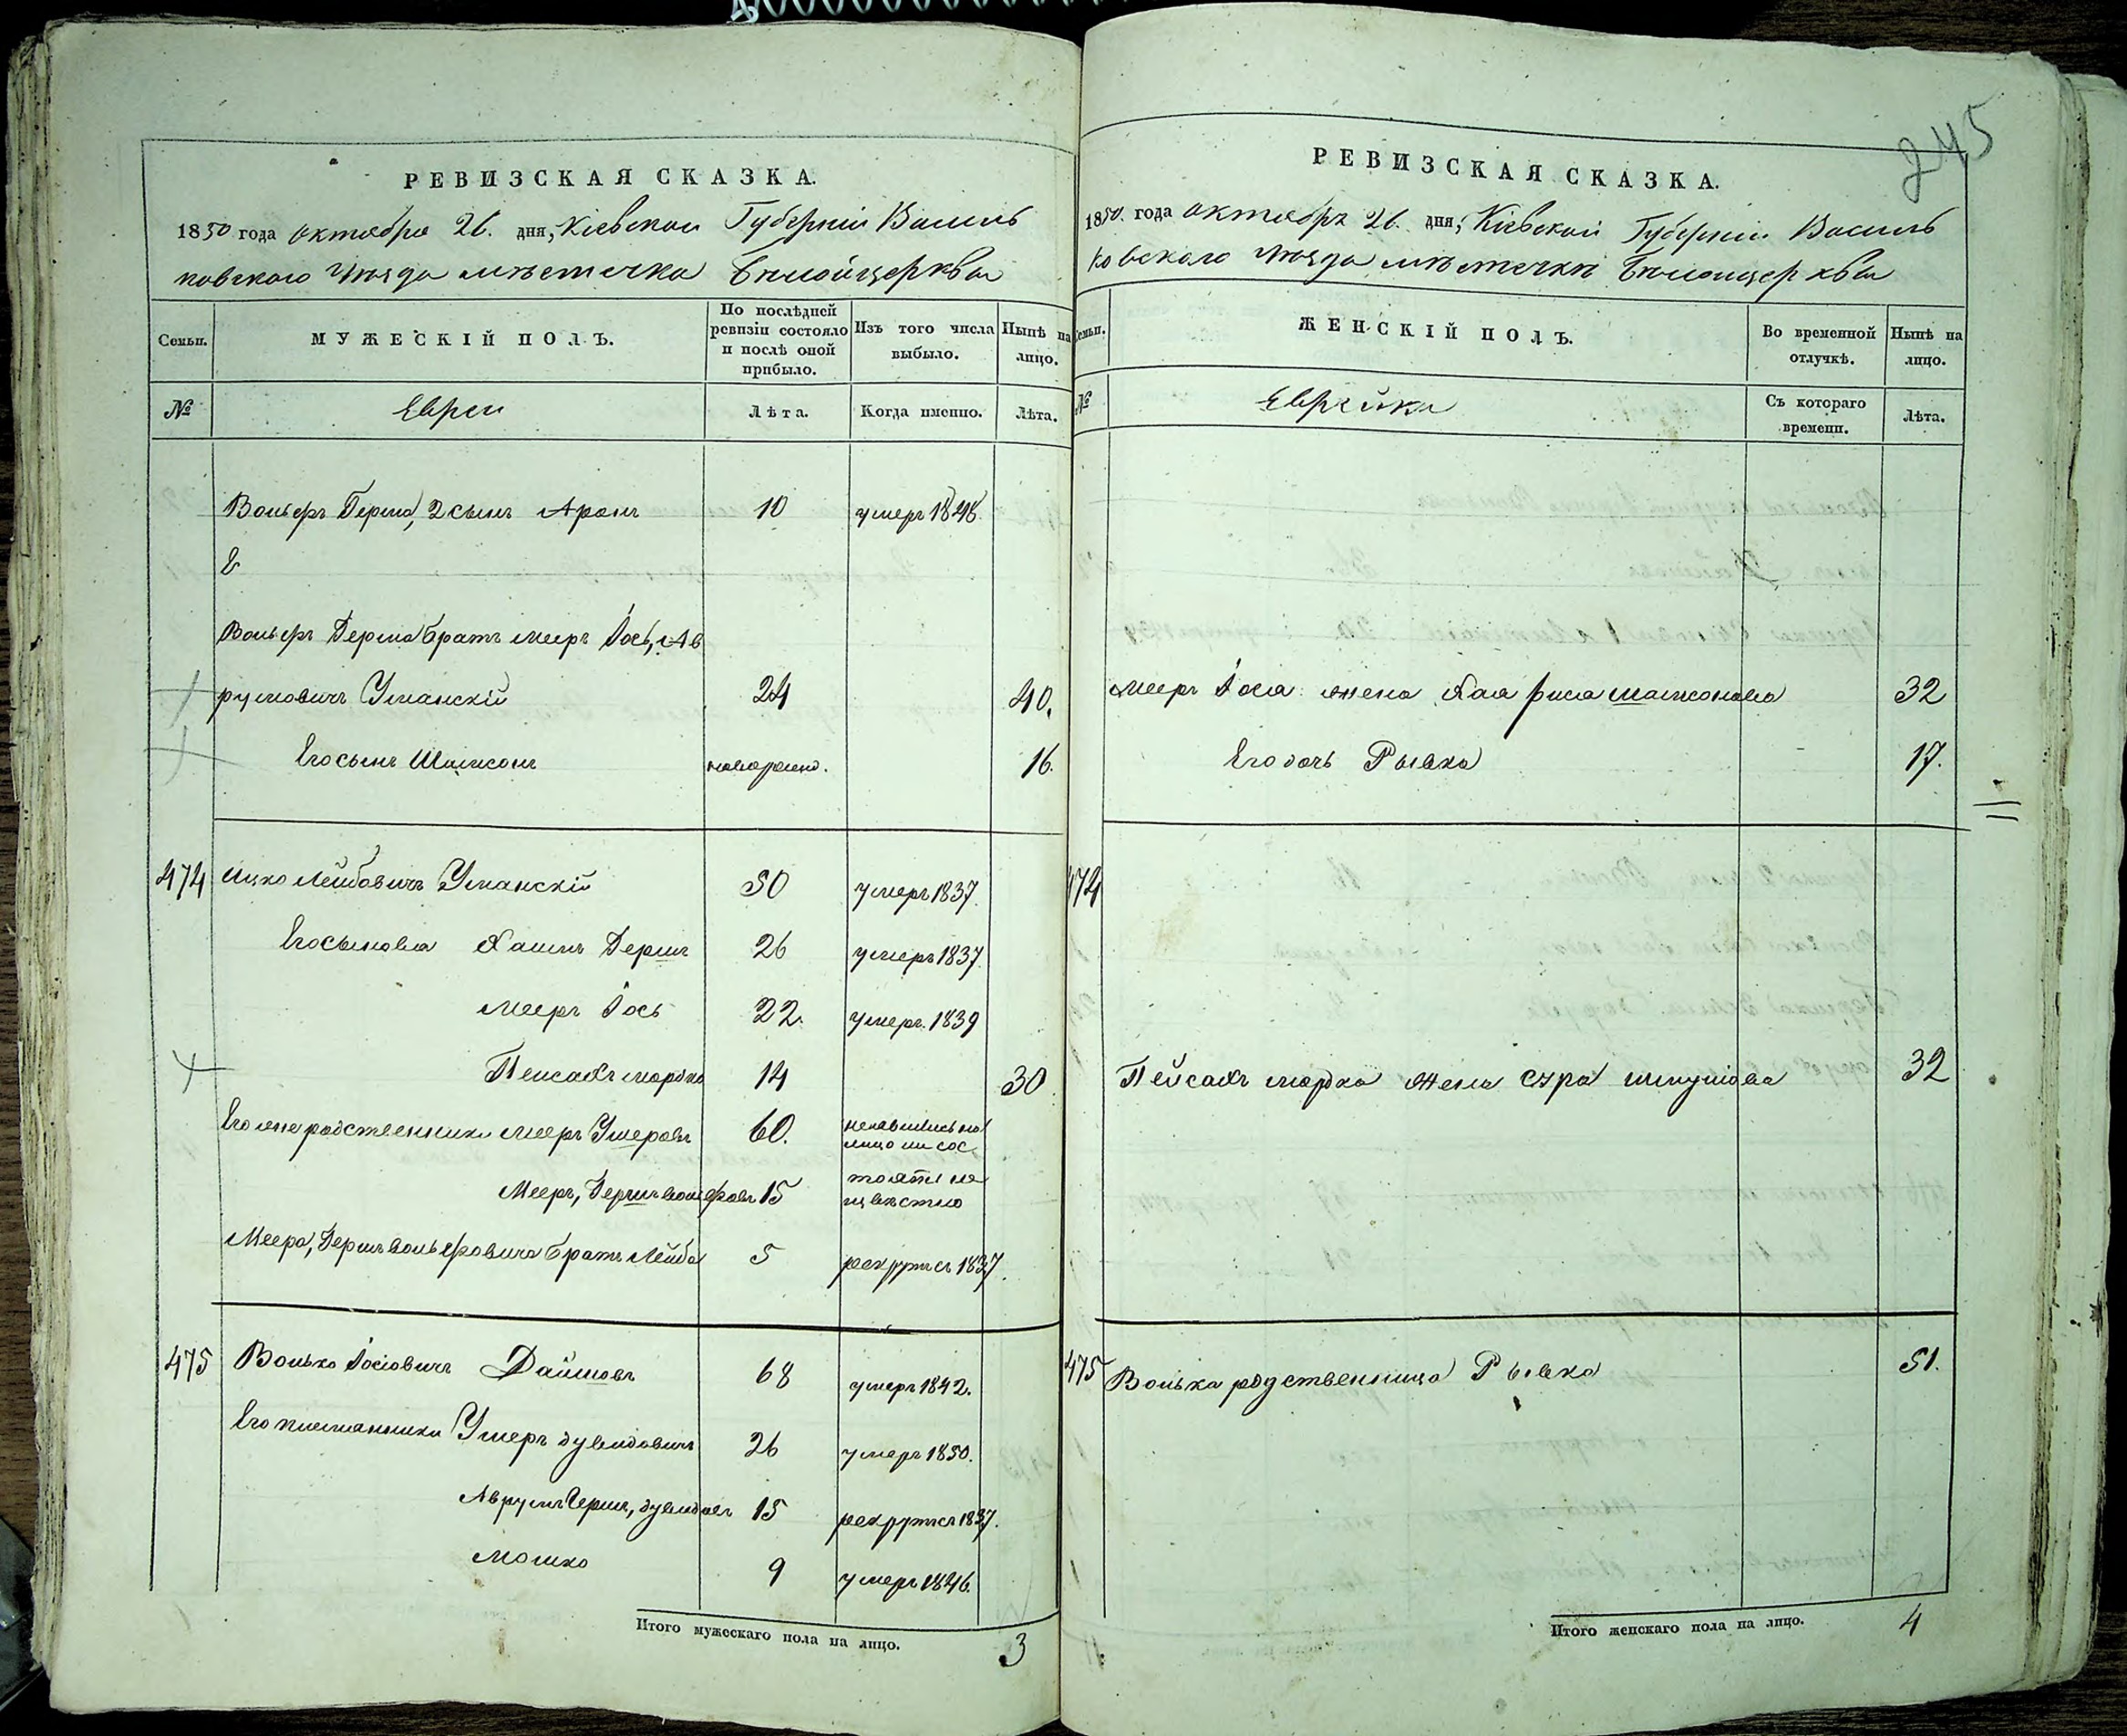 РЕВИЗСКАЯ СКАЗКА.
1850 года октября 26. дня, Кіевской Губерніи Василь
ковскаго уѣзда мѣстечка Бѣлойцеркви
Семьи.
МУЖЕСКІЙ ПОЛЪ.
По послѣдней ревизіи состояло и послѣ оной прибыло.
Изъ того числа выбыло.
Нынѣ на лицо.
№
Евреи
Лѣта.
Когда именно.
Лѣта.
Вольфъ Герша, 2 сынъ Аронъ 10 умеръ 1848.
Вольфъ Герша братъ Мееръ Іось, Ав
румовичъ Уманскій 24 40.
Его сынъ Шамсонъ новорожд. 16.
474 Ицко Лейбовичъ Уманскій 50 умеръ 1837.
Его сыновья Хаимъ Гершъ 26 умеръ 1837.
Мееръ Іось 22. умеръ 1839
Пейсахъ Мордко 14 30
Его же родственники Мееръ Умеровъ 60. неявились на лицо и сос
Мееръ, Гершъ Вольфовъ 15 тоятъ не извѣстно
Меера, Гершъ Вольфовича братъ Лейба 5 рекрутъ съ 1837.
475 Волько Іосіовичъ Дайшовъ 68 умеръ 1842.
Его племянники Умеръ Дувидовичъ 26 умеръ 1850.
Аврумъ Герш, Дувидовъ 15 рекрутъ съ 1837.
Мошко 9 умеръ 1846.
Итого мужескаго пола на лицо. 3
245
РЕВИЗСКАЯ СКАЗКА.
1850. года октября 26. дня, Кіевской Губерніи Василь
ковскаго уѣзда мѣстечка Бѣлойцеркви
Семьи.
ЖЕНСКІЙ ПОЛЪ.
Во временной отлучкѣ.
Нынѣ на лицо.
№
Еврейки
Съ котораго времени.
Лѣта.
Мееръ Іося жена Хая Рися Шамсонова 32
Его дочь Рывка 17.
474
Пейсахъ Мордка жена Сура 32
475 Волька родственница Рывка 51.
Итого женскаго пола на лицо. 4